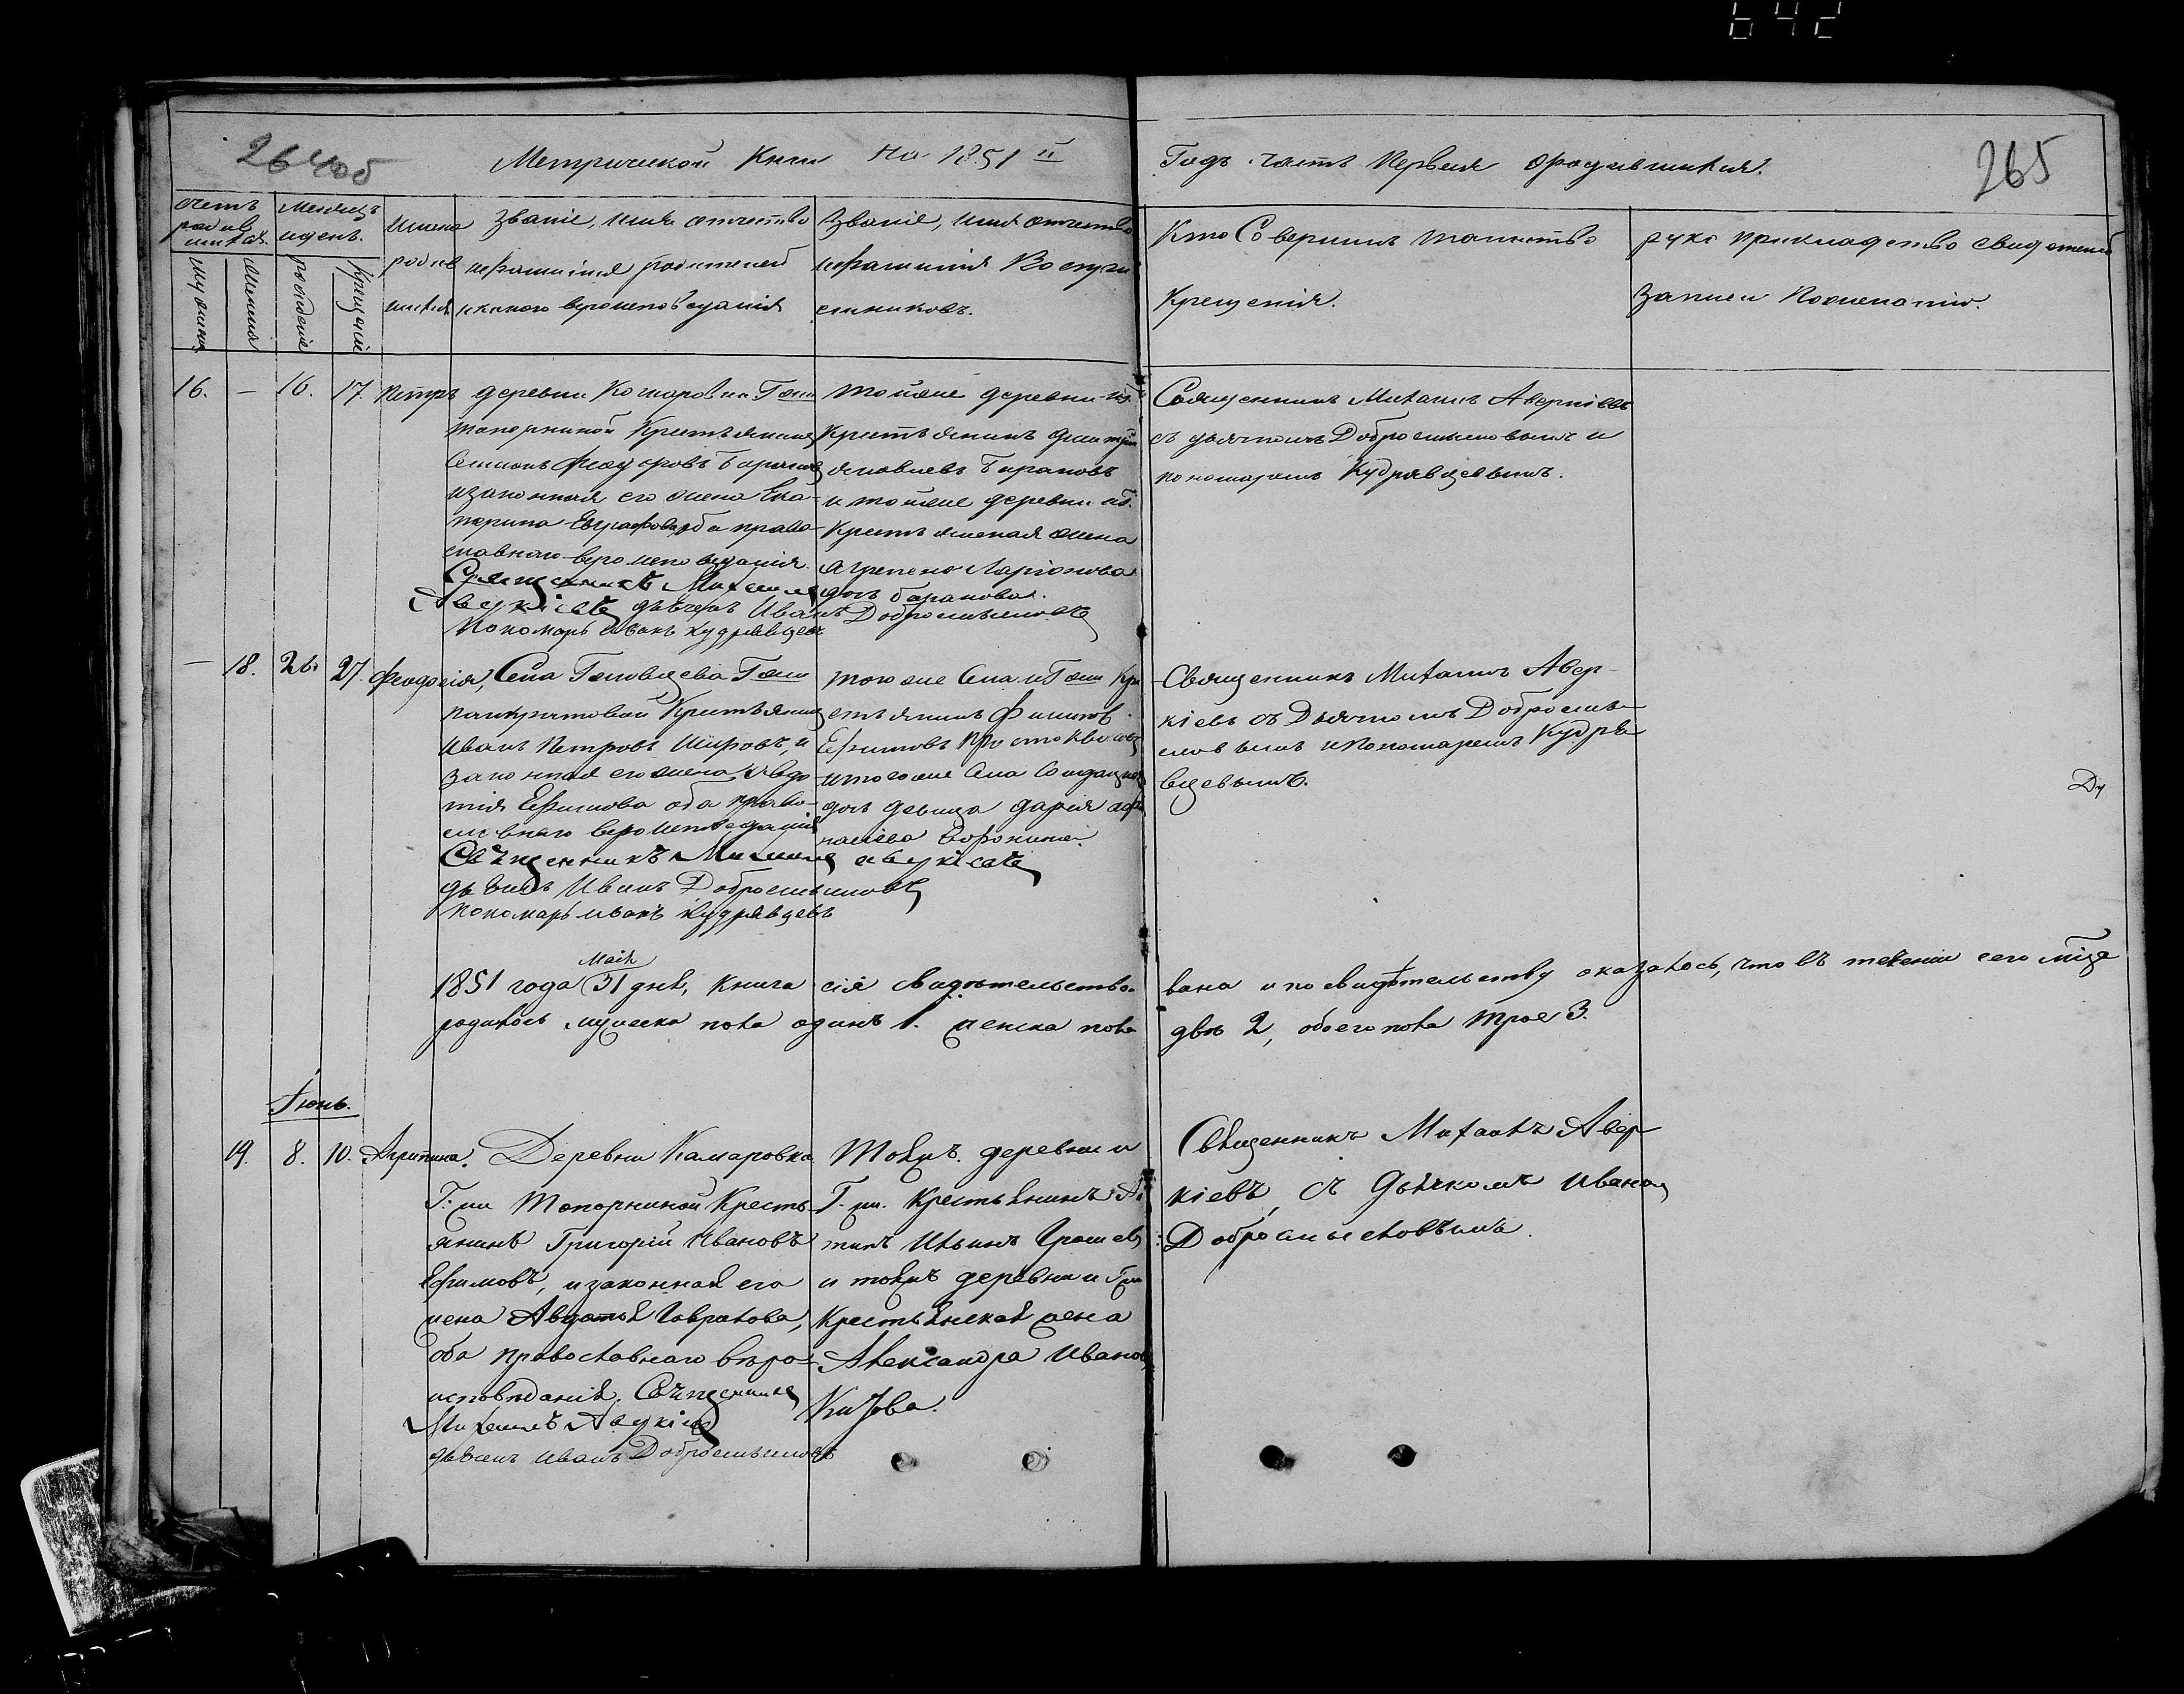 642
264об
Метрической Книги На 1851 й
Годъ часть Первая ородившихся.
265
счетъ родившихся.
мужеска
женска
Месяцъ иденъ.
рождение
крещение
Имена родившихся
Званіе, имя отчество
ифамилія родителей
икакого вероисповеданія
Званіе, имя отчество
ифамилія Воспри
емниковъ.
Кто Совершилъ таинство
Крещенія.
руко прикладство свидетелей
записи Пожеланію.
16. — 16. 17. Петръ
деревни Комаровки Гжи
топорниной Крестьянинъ
Семионъ Феодоровъ Барановъ
изаконная его жена Ека-
терина Евграфова, оба право-
славнаго вероисповеданія.
Священникъ Михаилъ
Аверкіевъ дьячекъ Иванъ Добросмысловъ
Пономарь Иванъ Кудрявцевъ
тойже деревни
Крестьянинъ Дмитрій
Яковлевъ Барановъ
и тойже деревни
Крестьянская жена
Агрепена Ларіонова
Баранова.
Священникъ Михаилъ Аверкіевъ
съ дьячкомъ Добросмысловымъ и
пономаремъ Кудрявцевымъ.
— 18. 26. 27. Феодосія,
Села Головцева Гжи
панкратовой Крестьянинъ
Иванъ Петровъ Шировъ, и
законная его жена Авдо-
тія Ефимова оба право-
славнаго вероисповеданія
Священникъ Михаилъ Аверкіевъ
дьячекъ Иванъ Добросмысловъ
Пономарь Иванъ Кудрявцевъ
тогоже Села и Гжи Кре
стьянинъ Филипъ
Ефимовъ
итогоже Села
девица Дарія Афа
насіева
Священникъ Михаилъ Авер-
кіевъ съ Дьячкомъ Добросмы-
словымъ иПономаремъ Кудря-
вцевымъ.
Ду
Маія
1851 года 31 дня, Книга сія свидѣтельство-
вана и по свидѣтельству оказалось, что въ теченіи сего мца
родилось мужеска пола одинъ 1. женска пола
двѣ 2, обоего пола трое 3.
Іюнь.
19. 8. 10. Агрипина.
Деревни Камаровка
Г: жи Топорниной Кресть-
янинъ Григорій Ивановъ
Ефимовъ, изаконная его
жена Авдотья Гаврилова,
оба православнаго вѣро-
исповѣданія. Священникъ
Михаилъ Аверкіевъ
дьячекъ Иванъ Добросмысловъ
Тойжъ деревни и
Г. жи. Крестьянинъ
Ильинъ
и тойжъ деревни и Гжи
Крестьянская жена
Александра Иванова
Священникъ Михаилъ Авер-
кіевъ, съ Дьячкомъ Иваномъ
Добросмысловымъ.